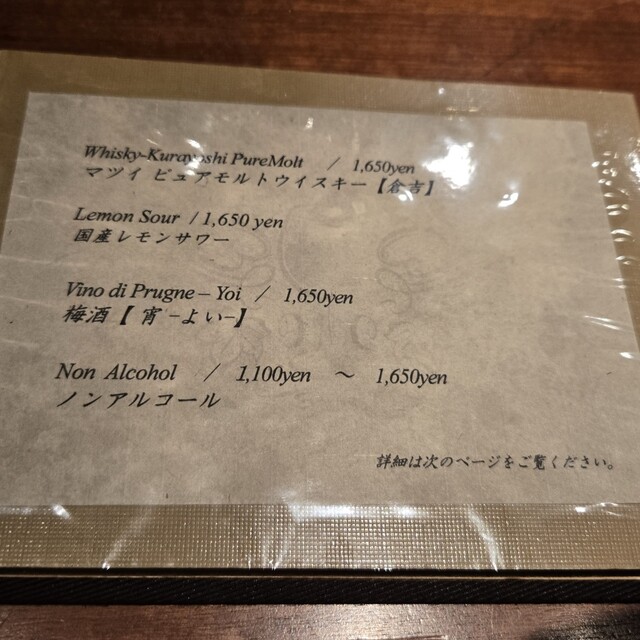 Whisky-Kurayoshi PureMolt / 1,650yen
マツイ ピュアモルトウイスキー【倉吉】
Lemon Sour / 1,650 yen
国産レモンサワー
Vino di Prugne – Yoi / 1,650yen
梅酒【 宵 –よい–】
Non Alcohol / 1,100yen ～ 1,650yen
ノンアルコール
詳細は次のページをご覧ください。